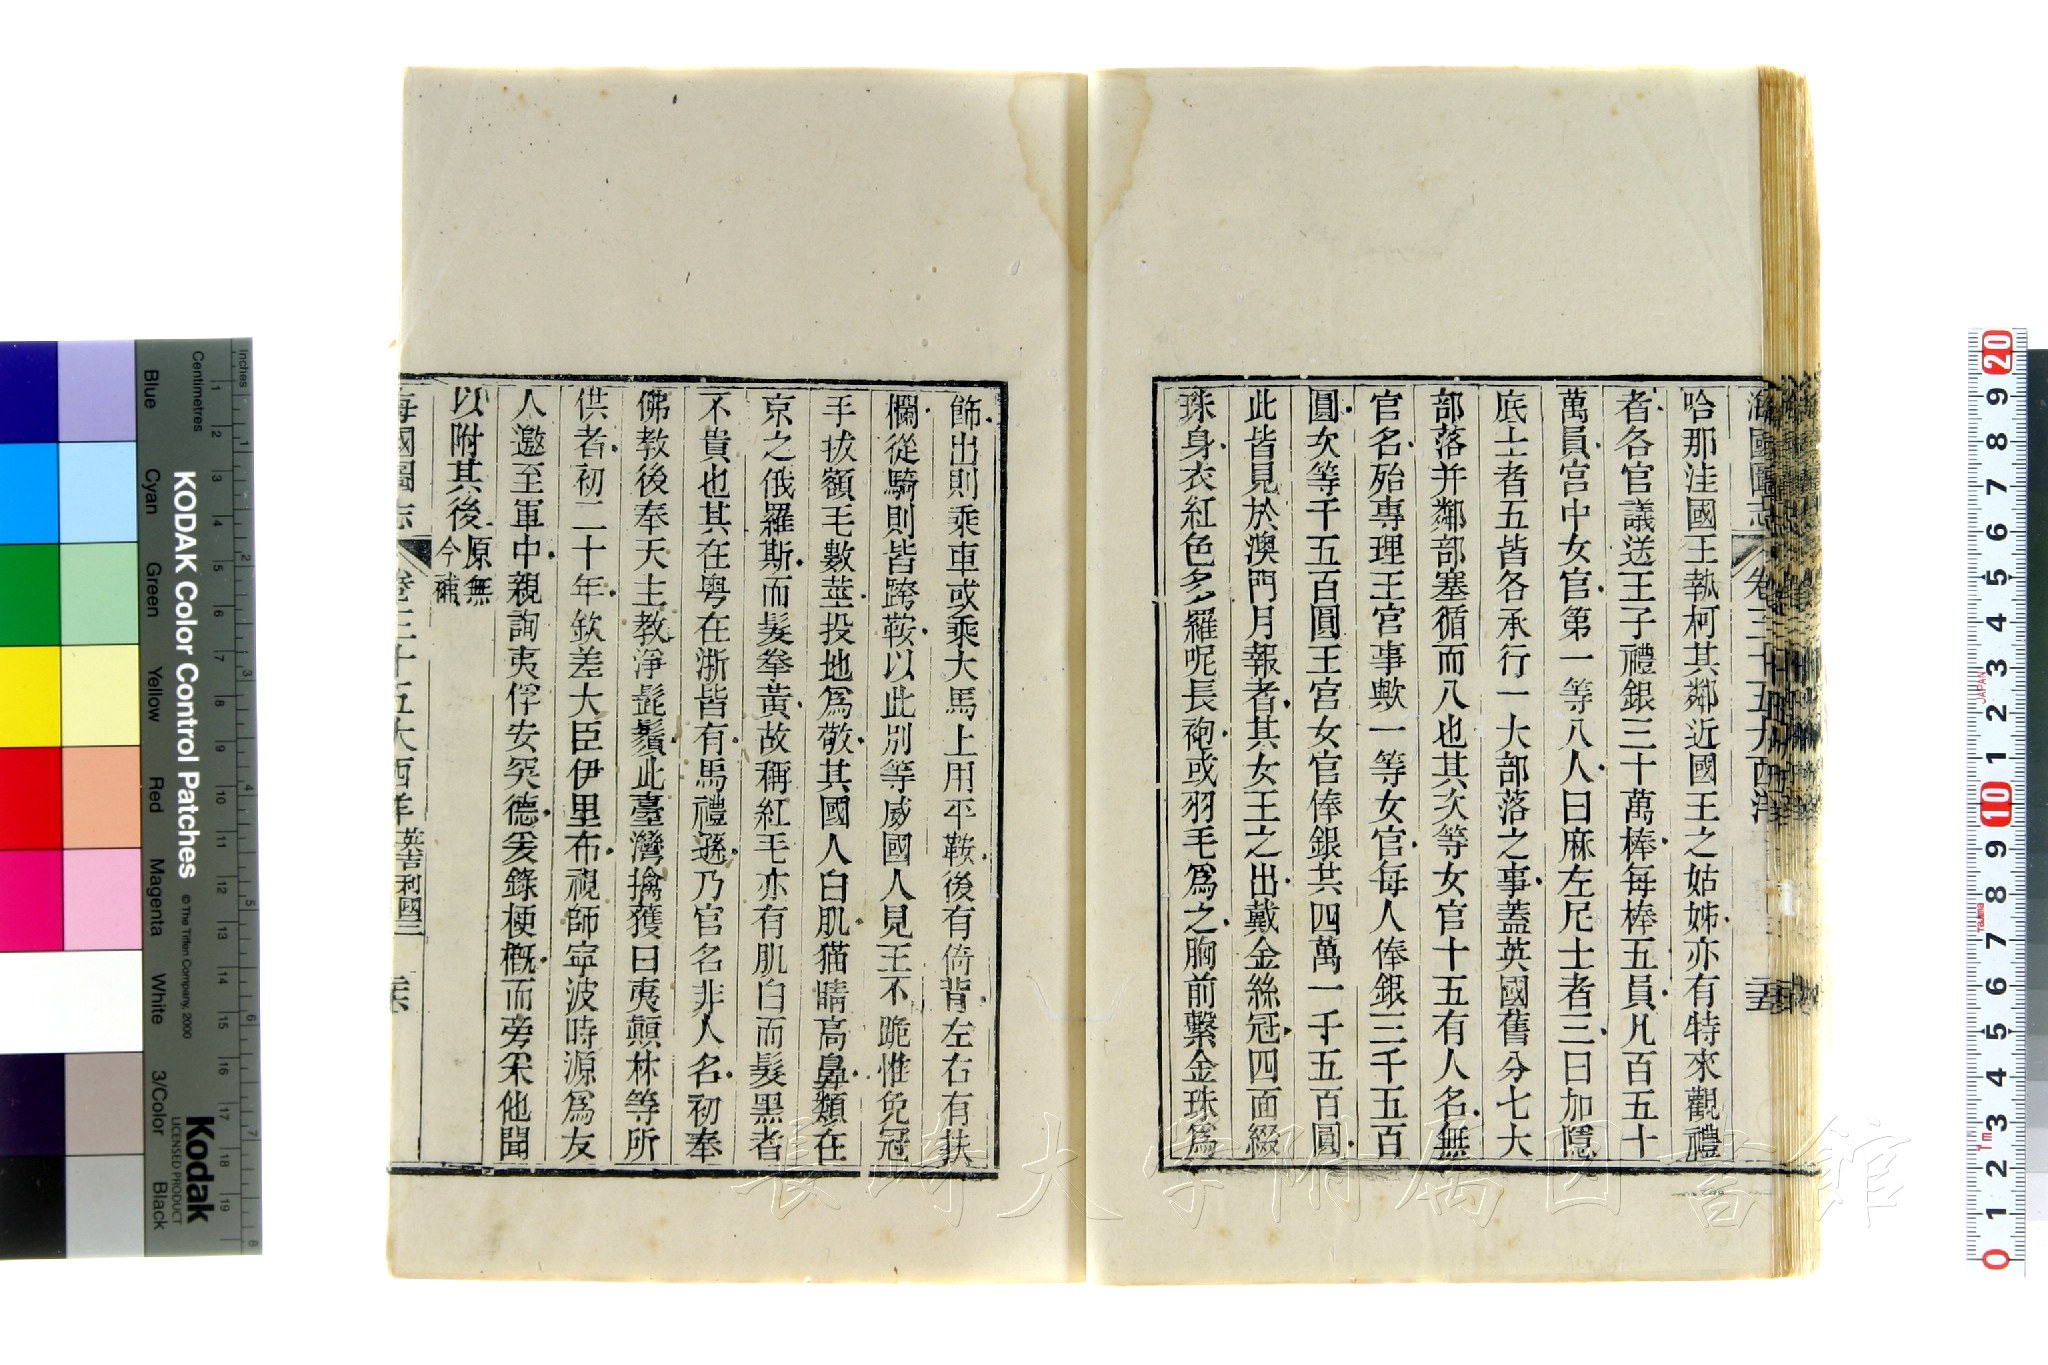 海國圖志 卷三十五 大西洋 三五
哈那洼國王執柯其鄰近國王之姑姊亦有特來觀禮
者各官議送王子禮銀三十萬棒每棒五員凡百五十
萬員宮中女官第一等八人曰麻左尼士者三曰加隱
底士者五皆各承行一大部落之事蓋英國舊分七大
部落并鄰部塞循而八也其次等女官十五有人名無
官名殆專理王宮事歟一等女官每人俸銀三千五百
圓次等千五百圓王宮女官俸銀共四萬一千五百圓
此皆見於澳門月報者其女王之出戴金絲冠四面綴
珠身衣紅色多羅呢長袍或羽毛爲之胸前繫金珠爲
飾出則乘車或乘大馬上用平鞍後有倚背左右有扶
欄從騎則皆跨鞍以此別等威國人見王不跪惟免冠
手拔額毛數莖投地爲敬其國人白肌猫睛高鼻類在
京之俄羅斯而髮拳黃故稱紅毛亦有肌白而髮黑者
不貴也其在粵在浙皆有馬禮遜乃官名非人名初奉
佛教後奉天主教淨髭鬚此臺灣擒獲曰夷顛林等所
供者初二十年欽差大臣伊里布視師寧波時源爲友
人邀至軍中親詢夷俘安突德爰錄梗概而旁采他聞
以附其後 原無
今補
海國圖志 卷三十五 大西洋 英吉利國三 三六
KODAK Color Control Patches © The Tiffen Company, 2000
Kodak
LICENSED PRODUCT
Inches
Centimetres
Blue Cyan Green Yellow Red Magenta White 3/Color Black
1 2 3 4 5 6 7 8 9 10 11 12 13 14 15 16 17 18 19
1 2 3 4 5 6 7 8
0 1 2 3 4 5 6 7 8 9 10 1 2 3 4 5 6 7 8 9 20
JAPAN
長崎大学附属図書館